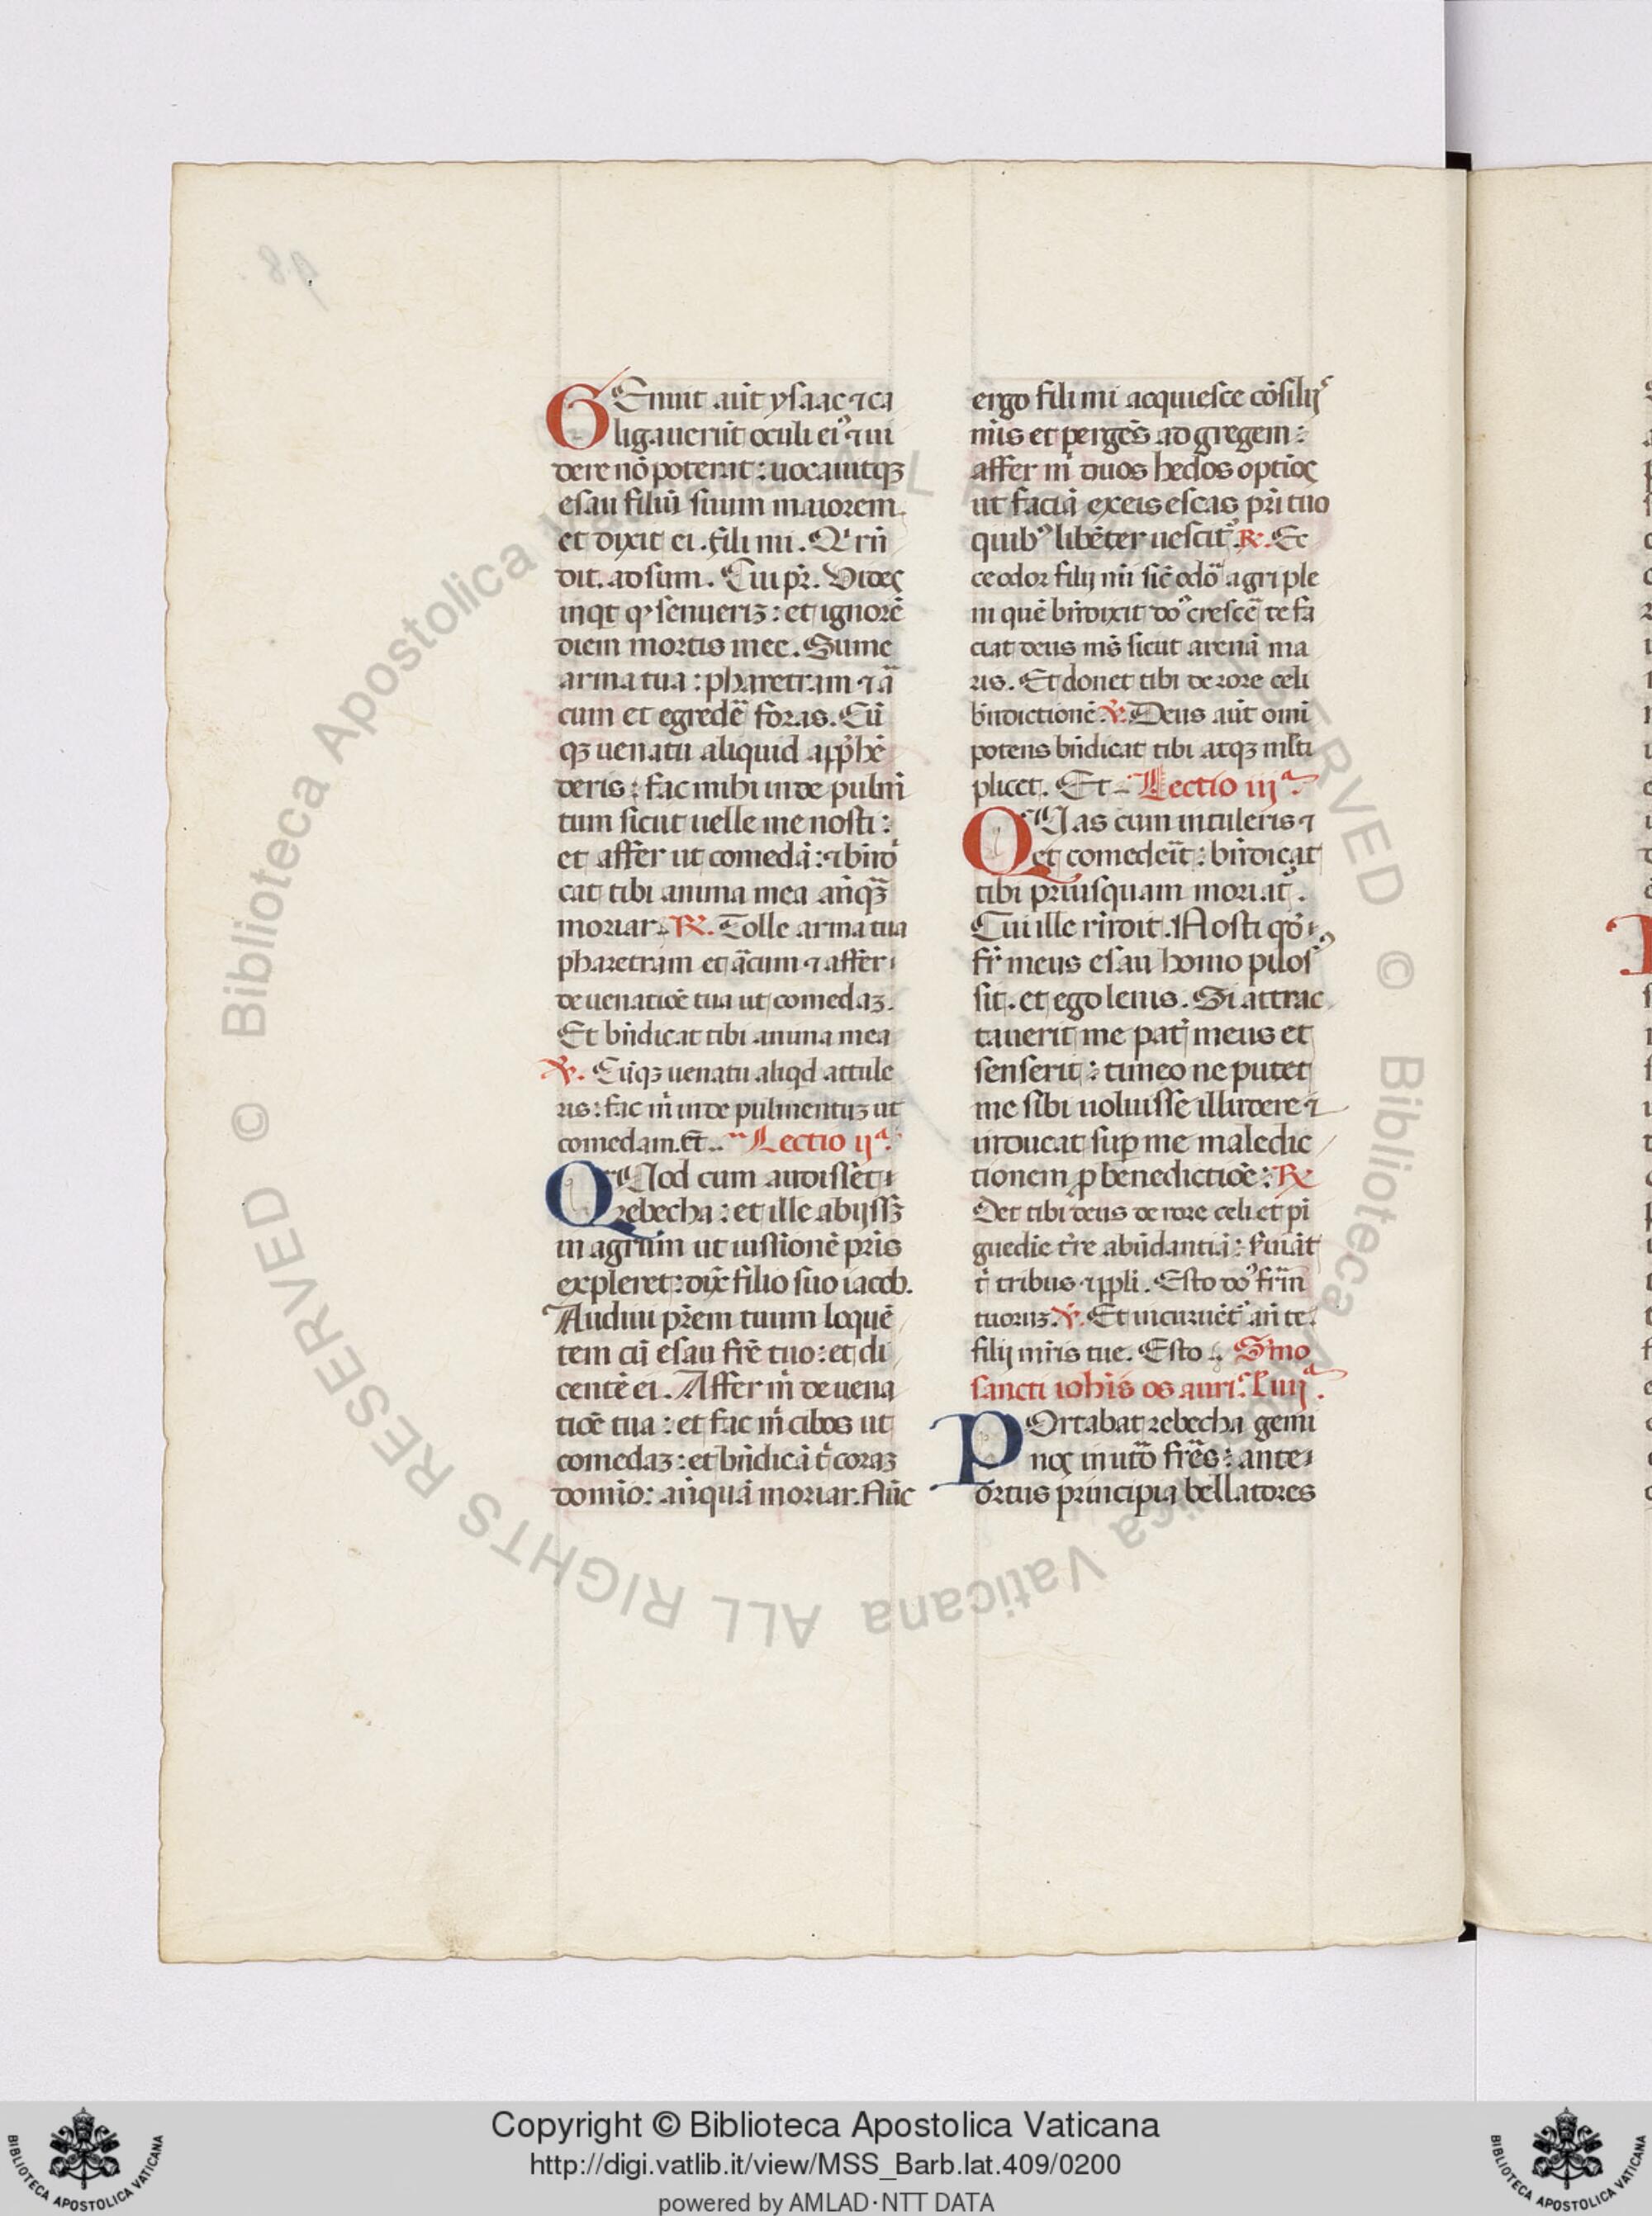 SEnuit aūt ysaac ⁊ ca
ligauerūt oculi eiꝰ ⁊ ui
dere nō poterat : uocauitqꝫ
esau filiū suum maiorem.
et dixit ei . fili mi . Q' rñ
dit . adsum . Cui pr̄ . Vides
inqt qꝫ senuerim : et ignorē
diem mortis mee . Sume
arma tua : pharetram ⁊ ar
cum et egrede foras . Cū
qꝫ uenatu aliquid app̄hē
deris : fac mihi inde pulm̄
tum sicut uelle me nosti :
et affer ut comedā : ⁊ bn̄d
cat tibi anima mea anq̄ꝫ
moriar . R. Tolle arma tua
pharetram et arcum ⁊ affer
de uenatiōe tua ut comedaꝫ.
Et bn̄dicat tibi anima mea
V. Cūqꝫ uenatu aliqd attule
ris : fac m̄ inde pulmentuꝫ ut
comedam . Et .. Lectio ijᵃ.
QUod cum audisset
rebecha : et ille abijssꝫ
in agrum ut iussionē pr̄is
expleret : dix̄ filio suo iacob.
Audiui pr̄em tuum loquē
tem cū esau fr̄e tuo : et di
centē ei . Affer m̄ de uena
tiōe tua : et fac m̄ cibos ut
comedaꝫ : et bn̄dicā t̄ coraꝫ
domīo : an̄quā moriar . Nūc
ergo fili mi acquiesce cōsilijs
meis et pergēs ad gregem :
affer m̄ duos hedos optīos
ut faciā ex eis escas pr̄i tuo
quibꝰ libēter uescit᷑ . R. Ec
ce odor filij mi sic̄ odor agri ple
ni quē bn̄dixit doꝰ crescē te fa
ciat deus ms̄ sicut arenā ma
ris . Et donet tibi de rore celi
bn̄dictionē . V. Deus aūt omi
potens bn̄dicat tibi atqꝫ ml̄ti
plicet . Et .. Lectio iijᵃ.
QUas cum intuleris ⁊
et comederit : bn̄dicat
tibi priusquam moriat᷑ .
Cui ille rn̄dit . Nosti qđ
fr̄ meus esau homo pilosꝰ
sit . et ego lenis . Si attrac
tauerit me pat̄ meus et
senserit : timeo ne putet
me sibi uoluisse illudere ⁊
inducat sup me maledic
tionem p̱ benedictiōe : R
Det tibi deus de rore celi et pi
guedie t̄re abūdantiā : s̄uiāt
t̄ tribus ⁊ ppl̄i . Esto doꝰ fr̄m
tuoruꝫ . V. Et incuruēt᷑ an̄ te
filij mr̄is tue . Esto .. Smo
sancti iohis os auri . l'iiijᵃ .
POrtabat rebecha gemi
nos in utō fr̄es : ante
ortus principia bellatores
Copyright © Biblioteca Apostolica Vaticana
http://digi.vatlib.it/view/MSS_Barb.lat.409/0200
powered by AMLAD·NTT DATA